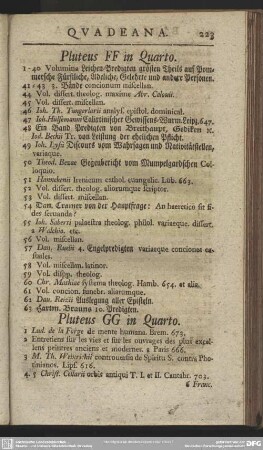 QVADEANA. 223
Pluteus FF in Quarto.
1-40 Volumina Leichen-Predigten grösten Theils auf Pommersche Fürstliche, Adeliche, Gelehrte und andere Personen.
41-43 3. Bände concionum miscellan.
44 Vol. dissert. theolog. maxime Abr. Calovii.
45 Vol. dissert. miscellan.
46 Joh. Th. analys. epistol. dominical.
47 Calixtinischer Gewissens-Wurm. Leipz. 647.
48 Ein Band Predigten von Breithaupt, Gedicken
Joh. Tr. von Leistung der ehelichen Pflicht.
49 Joh. Discours vom Wahrsagen und Nativitätstellen,
variaque.
50 Theod. Bezae Gegenbericht vom Mumpelgardschen Colloquio.
51 Irenicum cathol. evangelic. Lub. 663.
52 Vol. dissert. theolog. aliorumque scriptor.
53 Vol. dissert. miscellan.
54 Dan. Cramer von der Hauptfrage: An haeretico sit fides servanda?
55 Joh. palaestra theolog. philol. variaeque. dissert.
a Walchio. etc.
56 Vol. miscellan.
57 Dan. 4. Engelpredigten variaeque conciones casuales.
58 Vol. miscellan. latinor.
59 Vol. disput. theolog.
60 Chr. Mathiae systema theolog. Hamb. 654. et alia.
61 Vol. concion. funebr. aliorumque.
62 Dan. Auslegung aller Episteln.
63 Hartm. Brauns 10. Predigten.
Pluteus GG in Quarto.
1 Lud. de la Forge de mente humana. Brem. 673.
2 Entretiens sur les vies et sur les ouvrages des plus excellens peintres anciens et modernes. a Paris 666.
3 M. Th. controuersia de Spiritu S. contra Photinianos. Lips. 616.
4. 5 Christ. Cellarii orbis antiqui T. I. et II. Cantabr. 703.
6 Franc.